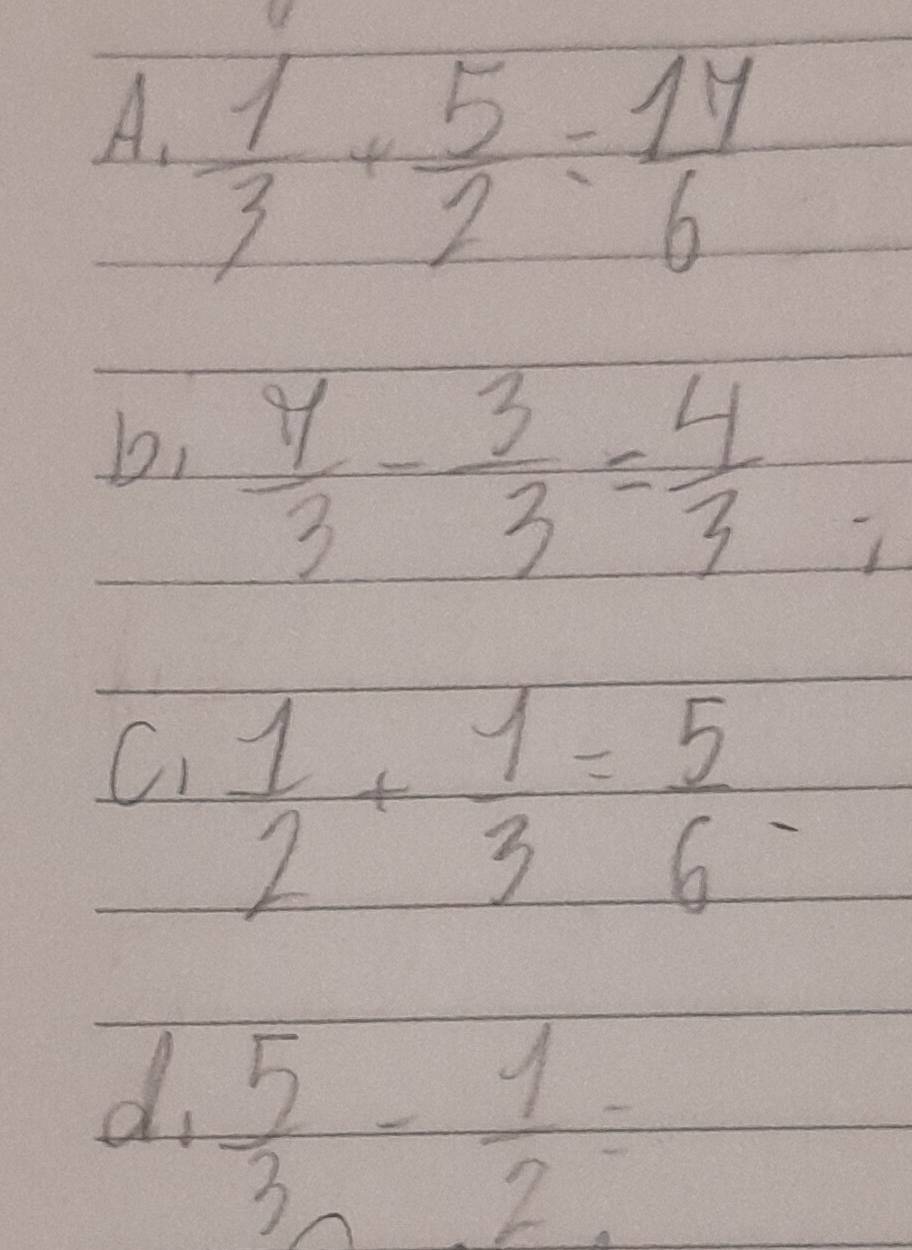 A. 1/3 + 5/2 = 17/6
b, 7/3 - 3/3 = 4/3 ;
C, 1/2 + 1/3 = 5/6
d, 5/3 - 1/2 =